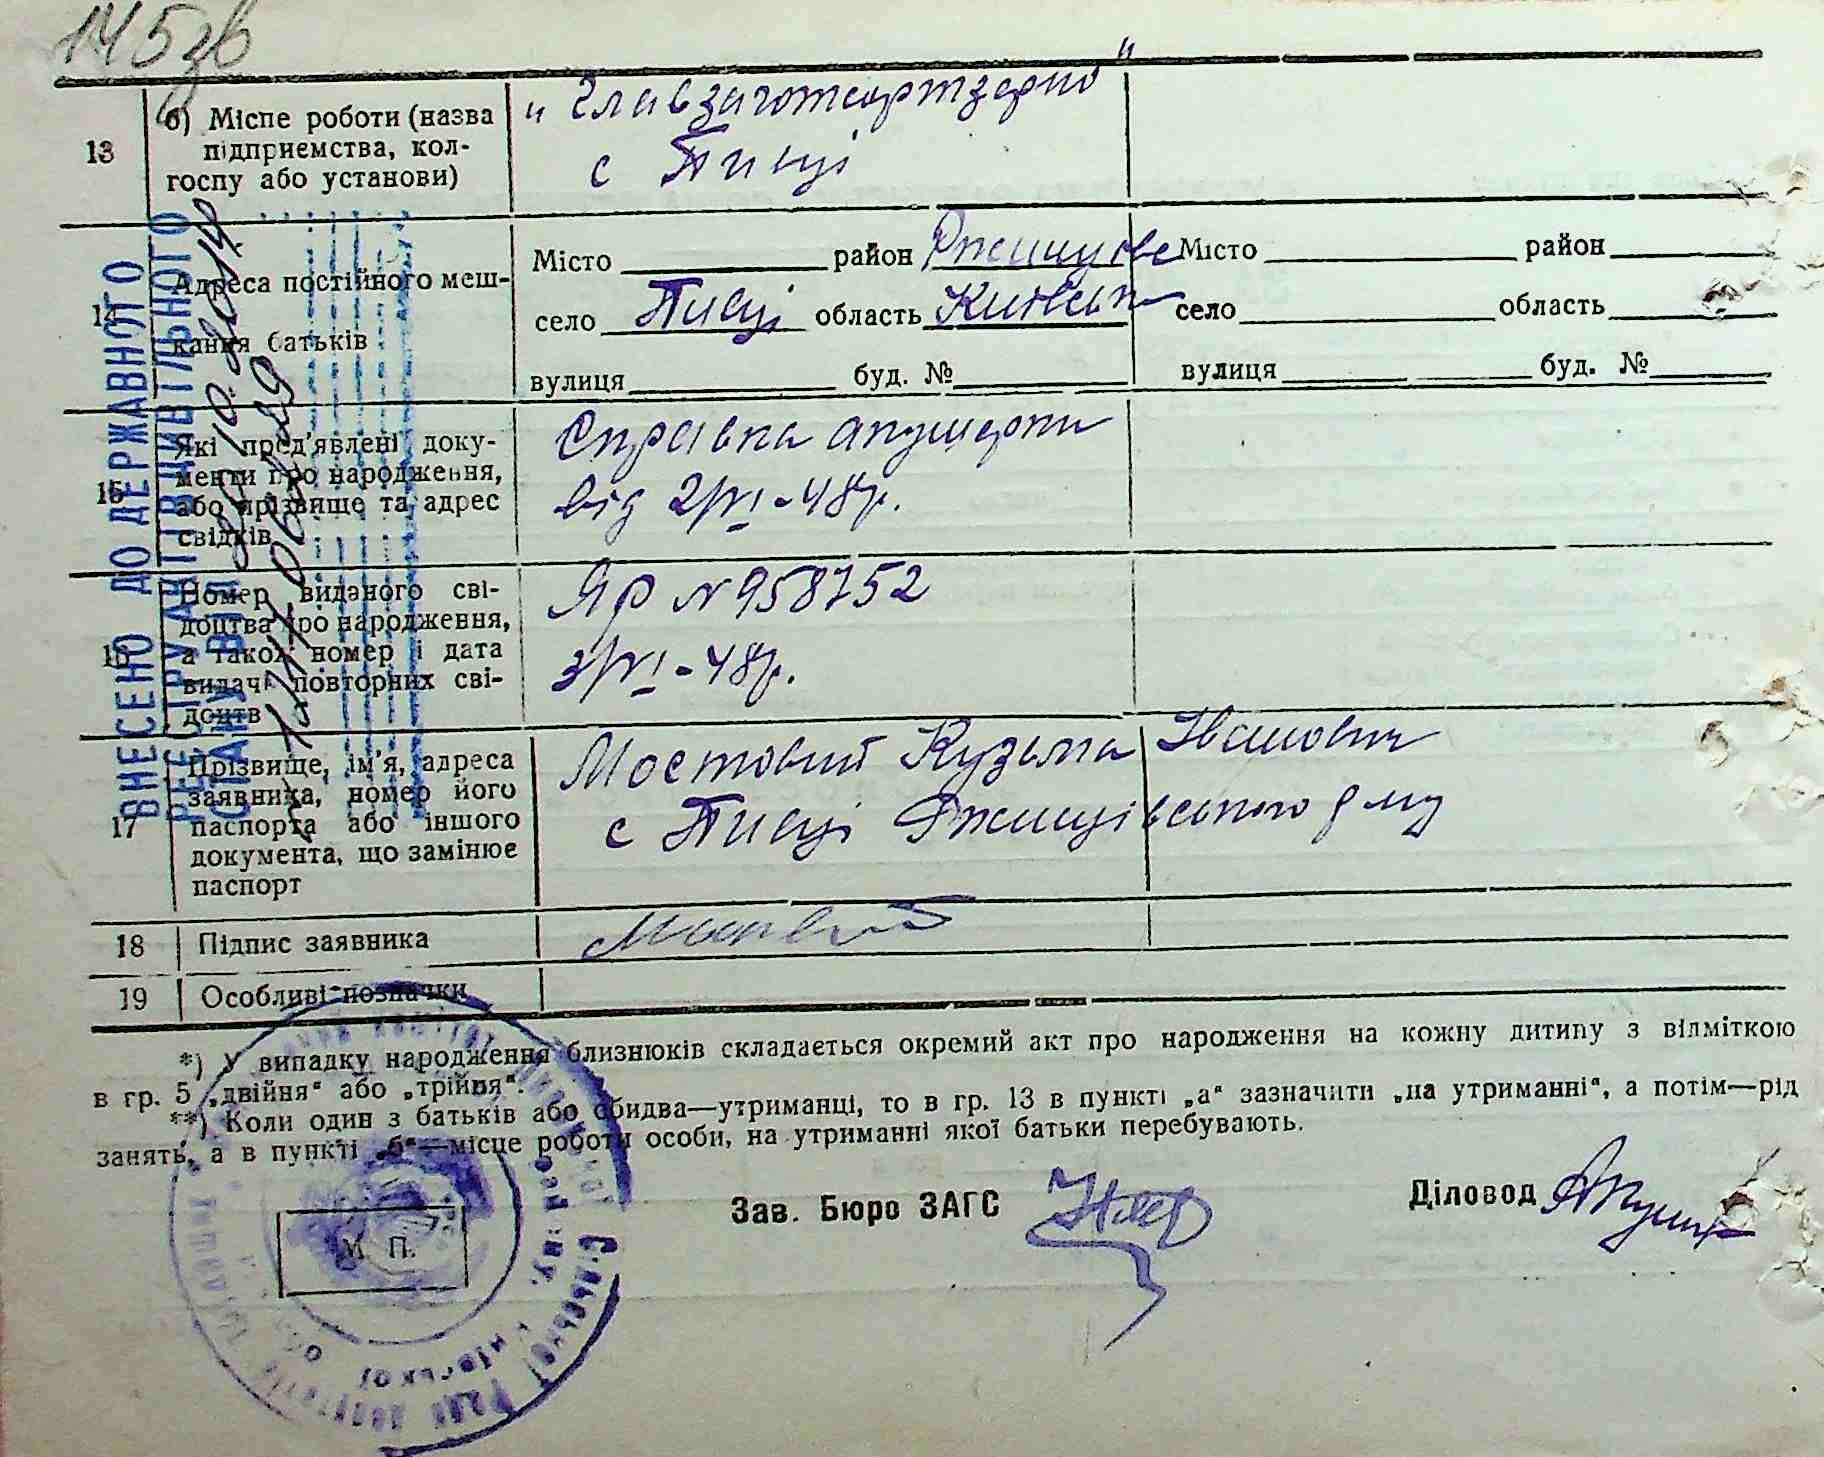 145зв
13
б) Місце роботи (назва
підприємства, кол-
госпу або установи)
„Главзаготсортзерно“
с Пиеці
14
Адреса постійного меш-
кання батьків
Місто район Ржищівс
село Пиеці область Київськ
вулиця буд. №
Місто район
село область
вулиця буд. №
15
Які пред'явлені доку-
менти про народження,
або прізвище та адрес
свідків
Справка акушерки
від 2/VI-48р.
16
Номер виданого сві-
доцтва про народження,
а також номер і дата
видачі повторних сві-
доцтв
ЯР N 958752
3/VI-48р.
17
Прізвище, ім'я, адреса
заявника, номер його
паспорта або іншого
документа, що замінює
паспорт
Мостовий Кузьма Іванович
с Пиеці Ржищівського р-ну
18
Підпис заявника
19
Особливі позначки
*) У випадку народження близнюків складається окремий акт про народження на кожну дитину з відміткою
в гр. 5 „двійня“ або „трійня“.
**) Коли один з батьків або обидва—утриманці, то в гр. 13 в пункті „а“ зазначити „на утриманні“, а потім—рід
занять, а в пункті „б“—місце роботи особи, на утриманні якої батьки перебувають.
М. П.
Зав. Бюро ЗАГС
Діловод
ВНЕСЕНО ДО ДЕРЖАВНОГО
РЕЄСТРУ АКТІВ ЦИВІЛЬНОГО
СТАНУ ВІД
Сільської Ради депутатів
Київської